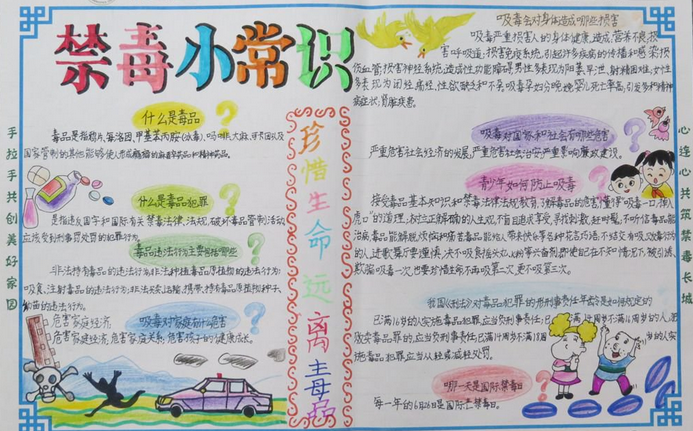 禁毒小常识
手拉手共创美好家园
什么是毒品
毒品是指鸦片、海洛因、甲基苯丙胺(冰毒)、吗啡、大麻、可卡因以及
国家管制的其他能够使人形成瘾癖的麻醉药品和精神药品。
什么是毒品犯罪
是指违反国家和国际有关禁毒法律、法规,破坏毒品管制活动,
应该受到刑罚处罚的犯罪行为。
毒品违法行为主要包括哪些
非法持有毒品的违法行为;非法种植毒品原植物的违法行为;
吸食、注射毒品的违法行为;非法买卖、运输、携带、持有毒品原植物种子、
幼苗的违法行为。
吸毒对家庭有什么危害
危害家庭经济
危害家庭经济、危害家庭关系、危害孩子的健康成长。
珍惜生命远离毒品
吸毒会对身体造成哪些损害
吸毒严重损害人的身体健康,造成营养不良,损
害呼吸道,损害免疫系统,引起许多疾病的传播和感染,损
伤血管,损害神经系统,造成性功能障碍,男性多表现为阳萎、早泄、射精困难,女性
多表现为闭经、痛经,性欲缺乏和不孕,吸毒孕妇分娩婴儿死亡率高;引发多种精神
病症状;肾脏疾患。
吸毒对国家和社会有哪些危害
严重危害社会经济的发展,严重危害社会治安,严重影响廉政建设。
青少年如何防止吸毒
接受毒品基本知识和禁毒法律法规教育,了解毒品的危害,懂得“吸毒一口,掉入
虎口”的道理;树立正确的人生观,不盲目追求享受,寻找刺激,赶时髦;不听信毒品能
治病,毒品能解脱烦恼和痛苦,毒品能给人带来快乐等各种花言巧语;不结交有吸、贩毒行为
的人;进歌舞厅要谨慎,决不吸食摇头丸、K粉等兴奋剂;即使自己在不知情的情况下,被引诱、
欺骗吸毒一次,也要珍惜生命,不再吸第二次,更不吸第三次。
我国《刑法》对毒品犯罪的刑事责任年龄是如何规定的
已满16岁的人实施毒品犯罪,应当负刑事责任;已满14周岁不满16周岁的人,犯
贩卖毒品罪的,应当负刑事责任;已满14周岁不满18周岁的人实
施毒品犯罪应当从轻或减轻处罚
哪一天是国际禁毒日
每一年的6月26日是国际禁毒日。
心连心共筑禁毒长城